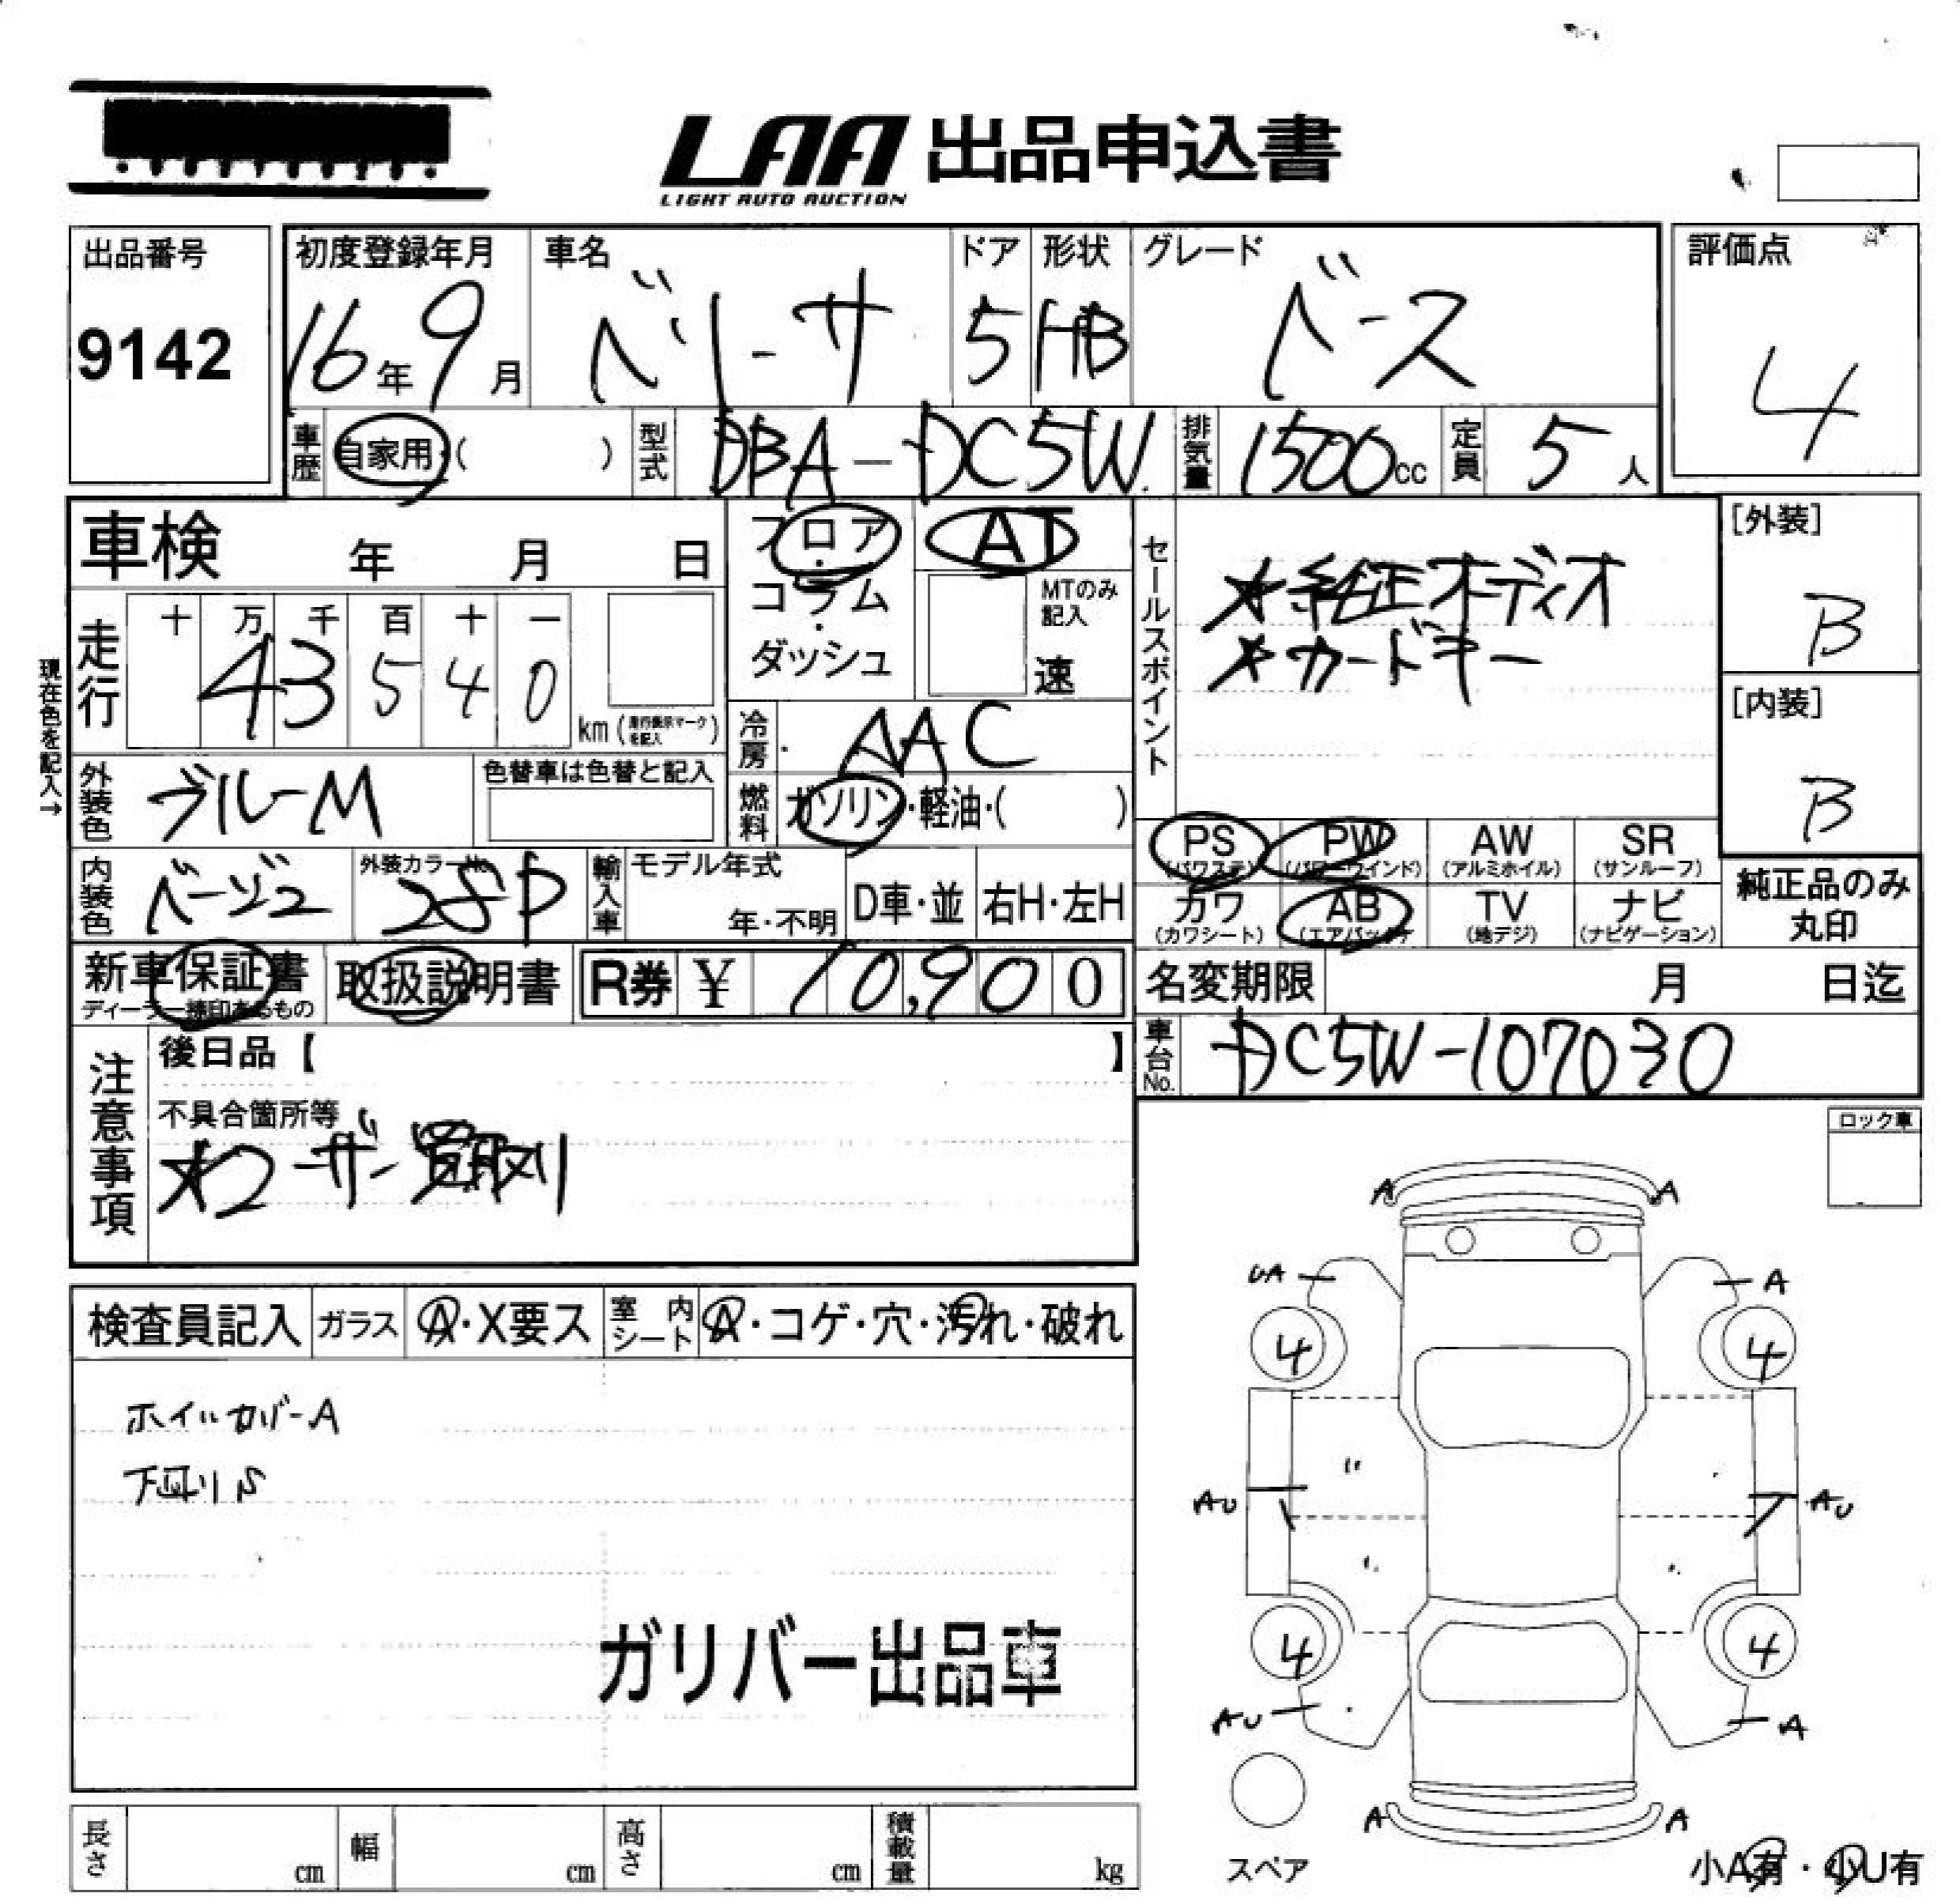 LAA 出品申込書
LIGHT AUTO AUCTION
出品番号
9142
初度登録年月
16年9月
車名
ベリーサ
ドア
5
形状
HB
グレード
ベース
評価点
4
車歴
自家用・( )
型式
DBA-DC5W
排気量
1500cc
定員
5人
車検 年 月 日
フロア・コラム・ダッシュ
AT
MTのみ記入
速
走行
十 万 千 百 十 一
4 3 5 4 0
km(走行表示マークを記入)
現在色を記入→
冷房
AAC
外装色
ブルーM
色替車は色替と記入
燃料
ガソリン・軽油・( )
内装色
ベージュ
外装カラーNo.
28P
輸入車
モデル年式
年・不明
D車・並
右H・左H
新車保証書
ディーラー捺印あるもの
取扱説明書
R券 ¥ 10,900
セールスポイント
★純正オーディオ
★カードキー
[外装]
B
[内装]
B
PS (パワステ)
PW (パワーウインド)
AW (アルミホイル)
SR (サンルーフ)
カワ (カワシート)
AB (エアバック)
TV (地デジ)
ナビ (ナビゲーション)
純正品のみ
丸印
名変期限 月 日迄
車台No.
DC5W-107030
注意事項
後日品【 】
不具合箇所等
★ユーザー買取り
ロック車
検査員記入
ガラス
A・X要ス
室内シート
A・コゲ・穴・汚れ・破れ
ホイルカバーA
下廻りS
ガリバー出品車
A A
UA A
4 4
AU AU
4 4
AU A
A A
スペア
小A有・小U有
長さ cm
幅 cm
高さ cm
積載量 kg